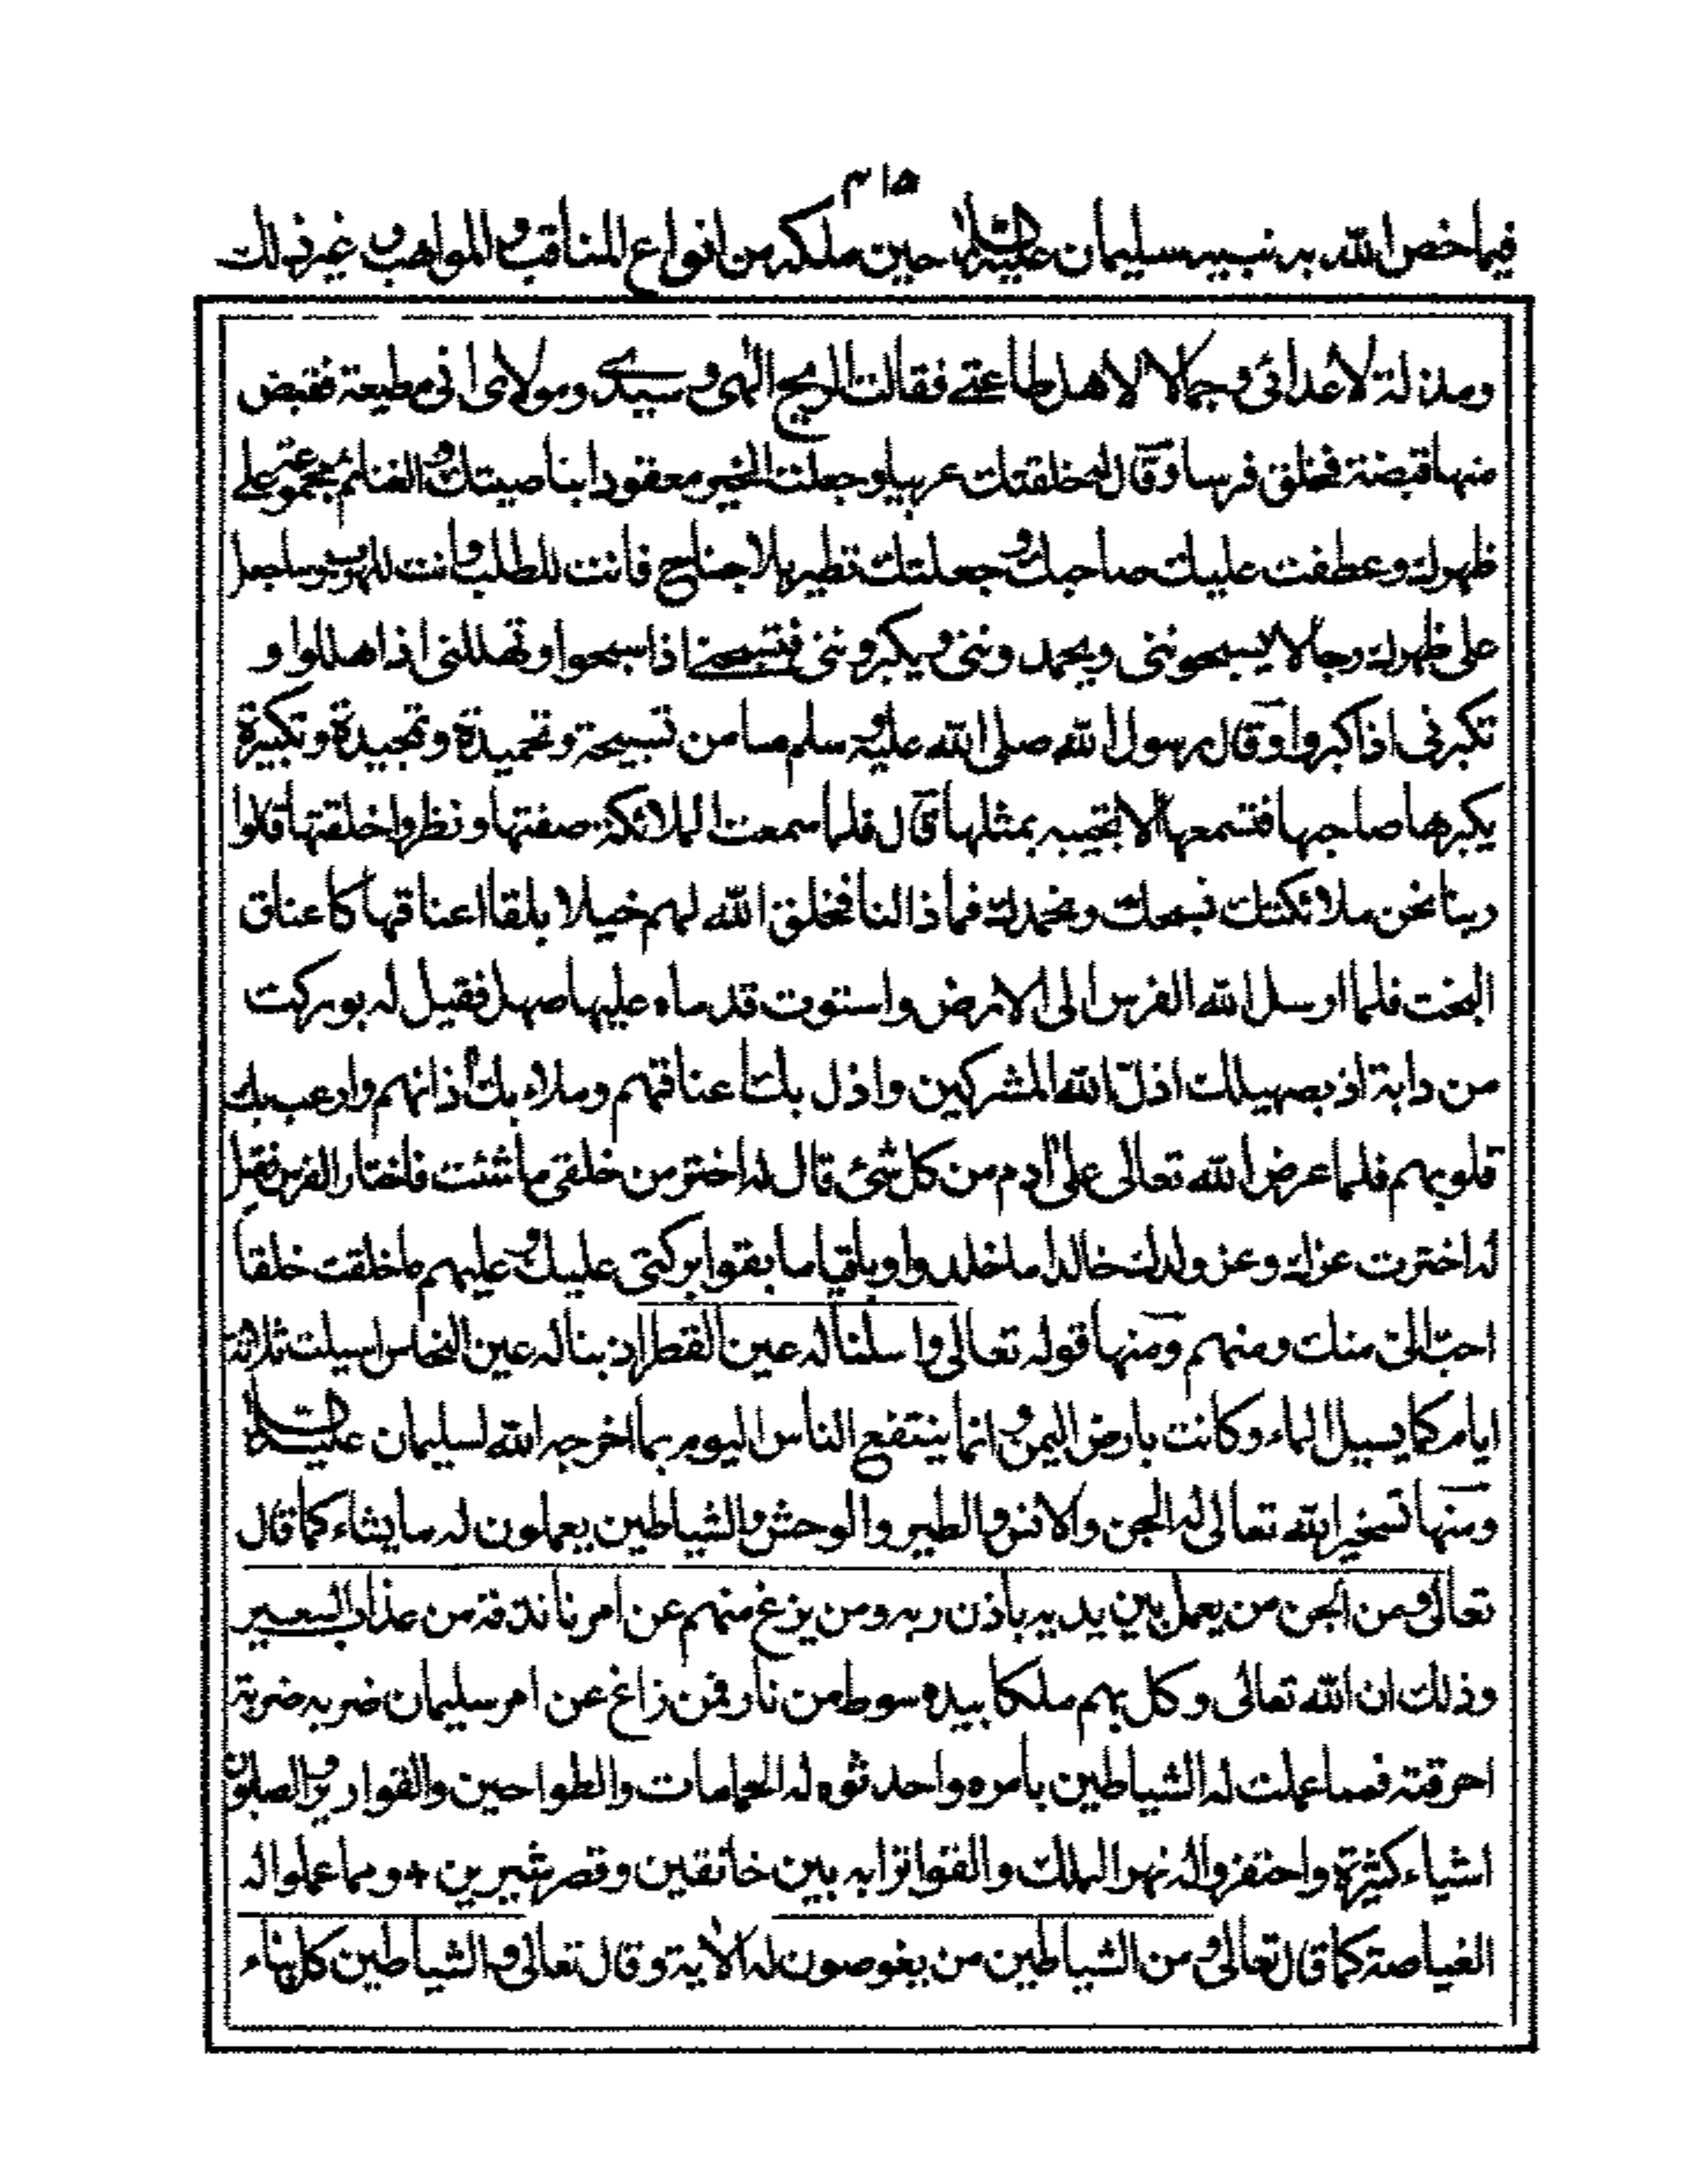 ٣١٥
فيما خص الله به نبيه سليمان عليه السلام حين ملكه من انواع المناقب والمواهب وغير ذلك
ومذلة لاعدائى وجمالا لاهل طاعتے فقالت الريح الٰهى وسيدى ومولاى انى مطيعة فقبض
منها قبضة فخلق فرسا وقال له خلقتك عربيا وجعلت الخير معقودا بناصيتك والغنائم مجموعة على
ظهرك وعطفت عليك صاحبك وجعلتك تطير بلا جناح فانت للطلب وانت للهرب وساجعل
على ظهرك رجالا يسبحوننى ويحمدوننى ويكبروننى فتسبحنے اذا سبحوا وتهللنى اذا هللوا و
تكبرنى اذا كبروا وقال رسول الله صلى الله عليه وسلم ما من تسبيحة وتحميدة وتمجيدة وتكبيرة
يكبرها صاحبها فتسمعها الا تجيبه بمثلها قال فلما سمعت الملائكة صفتها ونظروا خلقتها قالوا
ربنا نحن ملائكتك نسبحك ونحمدك فماذا لنا فخلق الله لهم خيلا بلقا اعناقها كاعناق
البخت فلما ارسل الله الفرس الى الارض واستوت قدماه عليها صهل فقيل له بوركت
من دابة اذ بصهيلك اذل الله المشركين واذل بك اعناقهم وملاء بك أذانهم وارعب بك
قلوبهم فلما عرض الله تعالى على أدم من كل شئ قال له اختر من خلقى ما شئت فاختار الفرس فقيل
له اخترت عزك وعز ولدك خالدا ما خلدوا وباقيا ما بقوا بركتى عليك وعليهم ما خلقت خلقا
احب الىّ منك ومنهم ومنها قوله تعالى واسلنا له عين القطر اذبنا له عين النحاس اسيلت ثلاثة
ايام كما يسيل الماء وكانت بارض اليمن وانما ينتفع الناس اليوم بما اخرجه الله لسليمان عليه السلام
ومنها تسخير الله تعالى له الجن والانس والطير والوحش والشياطين يعملون له ما يشاء كما قال
تعالى ومن الجن من يعمل بين يديه باذن ربه ومن يزغ منهم عن امرنا نذقه من عذاب السعير
وذلك ان الله تعالى وكل بهم ملكا بيده سوط من نار فمن زاغ عن امر سليمان ضربه ضربة
احرقته فمما عملت له الشياطين بامره واحدثوه له الحمامات والطواحين والقوارير والصابون
اشياء كثيرة واحتفروا له نهر الملك والقوا ترابه بين خانقين وقصر شيرين + ومما عملوا له
الغياصة كما قال تعالى ومن الشياطين من يغوصون له الاية وقال تعالى والشياطين كل بناء